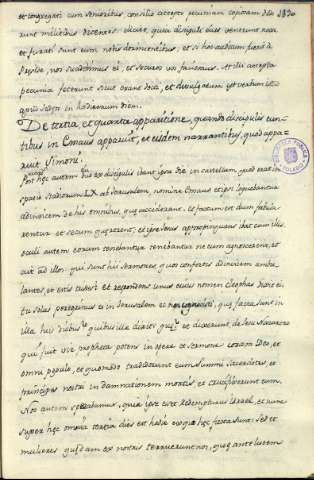 et congregati cum senioribus consilio accepto pecuniam copiosam dede
runt militibus dicentes: dicite, quia discipuli eius venerunt nocte
et furati sunt eum nobis dormientibus, et si hoc auditum fuerit à
Praeside, nos suadebimus ei, et securos vos faciemus. At illi accepta
pecunia fecerunt sicut erant docti, et divulgatum est verbum istud
apud Judaeos in hodiernum diem.
De tertia, et quarta apparitione, quando discipulis eun-
tibus in Emaus apparuit, et eisdem narrantibus, quod appa-
ruit Simoni.
Post haec autem duo ex discipulis ibant ipsa die in castellum, quod erat in
spatio stadiorum LX ab Jerusalem, nomine Emaus et ipsi loquebantur
ad invicem de his omnibus, quae acciderant. Et factum est dum fabula
rentur et secum quaererent, et ipse Jesus appropinquans ibat cum illis,
oculi autem eorum tenebantur ne eum agnoscerent, et
ait ad illos: qui sunt hi sermones quos confertis ad invicem ambu
lantes, et estis tristes et respondens unus cui nomen Cleophas dixit ei:
tu solus peregrinus es in Jerusalem et non cognovisti, quae facta sunt in
illa his diebus quibus ille dixit quae? et dixerunt de Jesu Nazareno
qui fuit vir propheta potens in opere et sermone coram Deo, et
omni populo, et quomodo tradiderunt eum summi sacerdotes, et
principes nostri in damnationem mortis, et crucifixerunt eum.
Nos autem sperabamus, quia ipse esset redempturus Israel, et nunc
super haec omnia tertia dies est hodie quod haec facta sunt: sed et
mulieres quaedam ex nostris terruerunt nos, quae ante lucem